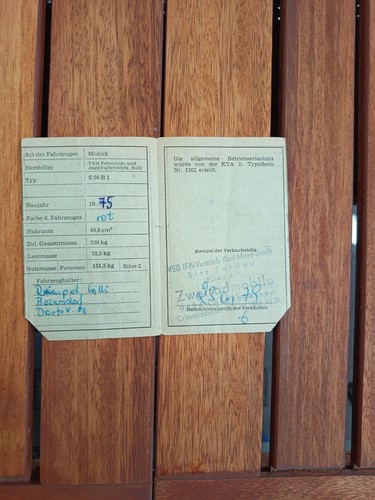 Art des Fahrzeuges Mokick
Hersteller VEB Fahrzeug- und Jagdwaffenwerk, Suhl
Typ S 50 B 1
Baujahr 1975
Farbe d. Fahrzeuges rot
Hubraum 49,6 cm³
Zul. Gesamtmasse 230 kg
Leermasse 78,5 kg
Nutzmasse/Personen 151,5 kg Sitze 2
Fahrzeughalter:
Dorfstr.
Die allgemeine Betriebserlaubnis
wurde von der KTA lt. Typschein
Nr. 1262 erteilt.
Stempel der Verkaufsstelle
VEB IFA-Vertrieb Karl-Marx-Stadt
Datum/Unterschrift des Verkäufers